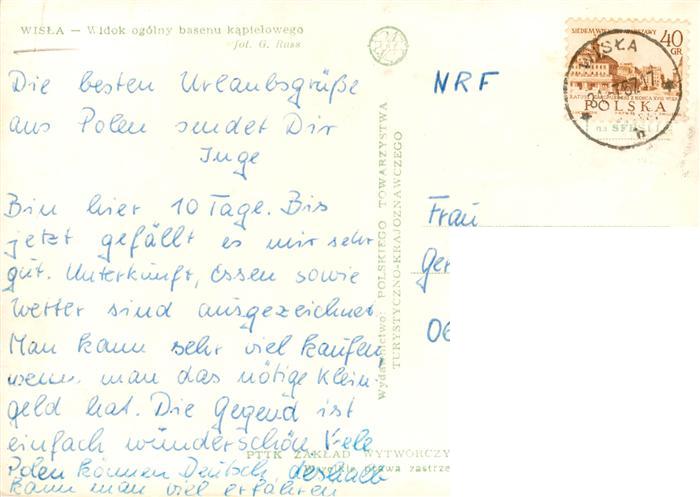 WISŁA — Widok ogólny basenu kąpielowego
fot. G. Russ
Die besten Urlaubsgrüße
aus Polen sendet Dir
Inge
Bin hier 10 Tage. Bis
jetzt gefällt es mir sehr
gut. Unterkunft, Essen sowie
Wetter sind ausgezeichnet
Man kann sehr viel kaufen,
wenn man das nötige Klein-
geld hat. Die Gegend ist
einfach wunderschön Viele
Polen können Deutsch deshalb
kann man viel erfahren
Wydawnictwo: POLSKIEGO TOWARZYSTWA
TURYSTYCZNO-KRAJOZNAWCZEGO
PTTK ZAKŁAD WYTWÓRCZY
prawa zastrze
NRF
Frau
Ger
06
SIEDEM WARSZAWY
40
GR
POLSKA
WISŁA
na